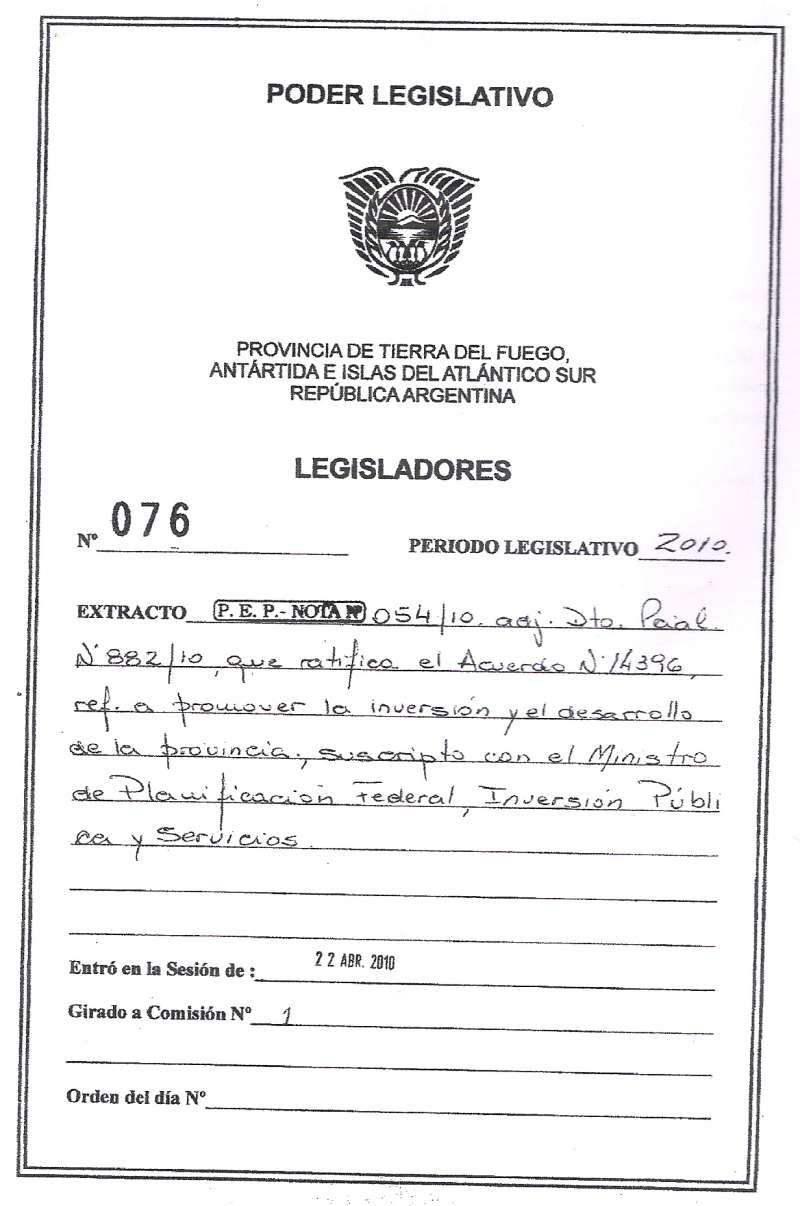 PODER LEGISLATIVO
PROVINCIA DE TIERRA DEL FUEGO,
ANTÁRTIDA E ISLAS DEL ATLÁNTICO SUR
REPÚBLICA ARGENTINA
LEGISLADORES
Nº 076 PERIODO LEGISLATIVO 2010.
EXTRACTO P. E. P.- NOTA Nº 054/10. adj. Dto. Pcial.
Nº 882/10, que ratifica el Acuerdo Nº 14396,
ref. a promover la inversión y el desarrollo
de la provincia, suscripto con el Ministro
de Planificación Federal, Inversión Públi
ca y Servicios.
Entró en la Sesión de : 22 ABR. 2010
Girado a Comisión Nº 1
Orden del día Nº